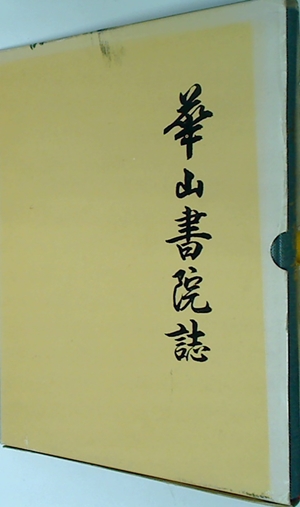 華山書院誌